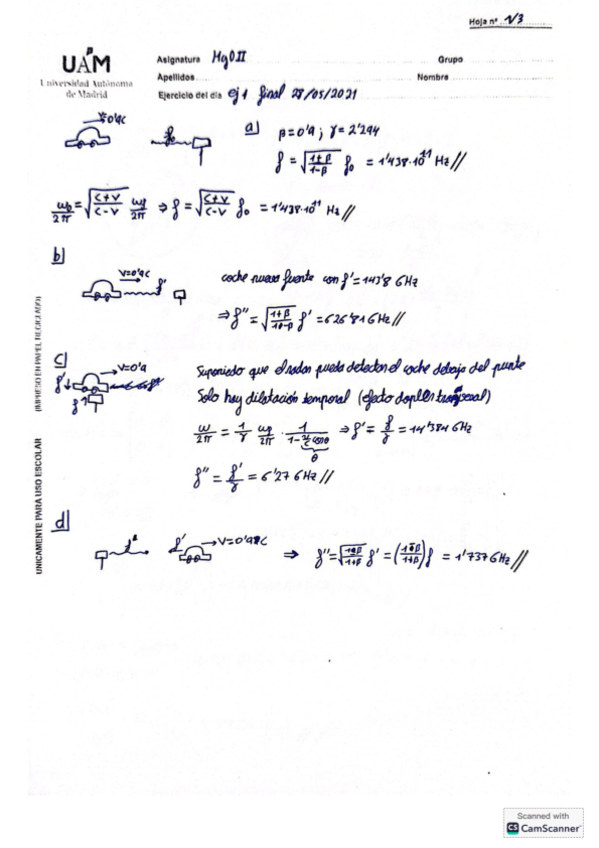 Hoja nº 1/3
UAM
Universidad Autónoma
de Madrid
Asignatura MyO II Grupo
Apellidos Nombre
Ejercicio del día ej 1 final 28/05/2021
v=0'9c
a) β=0'9 ; γ=2'294
f = √(1+β/1-β) f₀ = 1'438·10¹¹ Hz //
ω₀/2π = √(c+v/c-v) ωf/2π ⇒ f = √(c+v/c-v) f₀ = 1'438·10¹¹ Hz //
b)
v=0'9c f'
coche nueva fuente con f'=143'8 GHz
⇒ f'' = √(1+β/1-β) f' = 626'816Hz //
c)
v=0'9
f' f
Suponiendo que el radar pueda detectar el coche debajo del puente
Solo hay dilatación temporal (efecto doppler transversal)
ω/2π = 1/γ ωf/2π · 1/(1-v/c cosθ) ⇒ f' = f/γ = 14'384 GHz
f'' = f'/γ = 6'27 GHz //
d)
f' v=0'9c ⇒ f'' = √(1-β/1+β) f' = (1-β/1+β) f = 1'737 GHz //
UNICAMENTE PARA USO ESCOLAR (IMPRESO EN PAPEL RECICLADO)
Scanned with
CS CamScanner